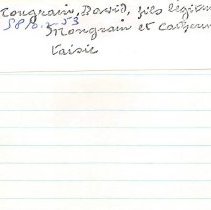 Mongrain, David, fils légitim
5818. - 53
Mongrain et Catherin
Vaisie